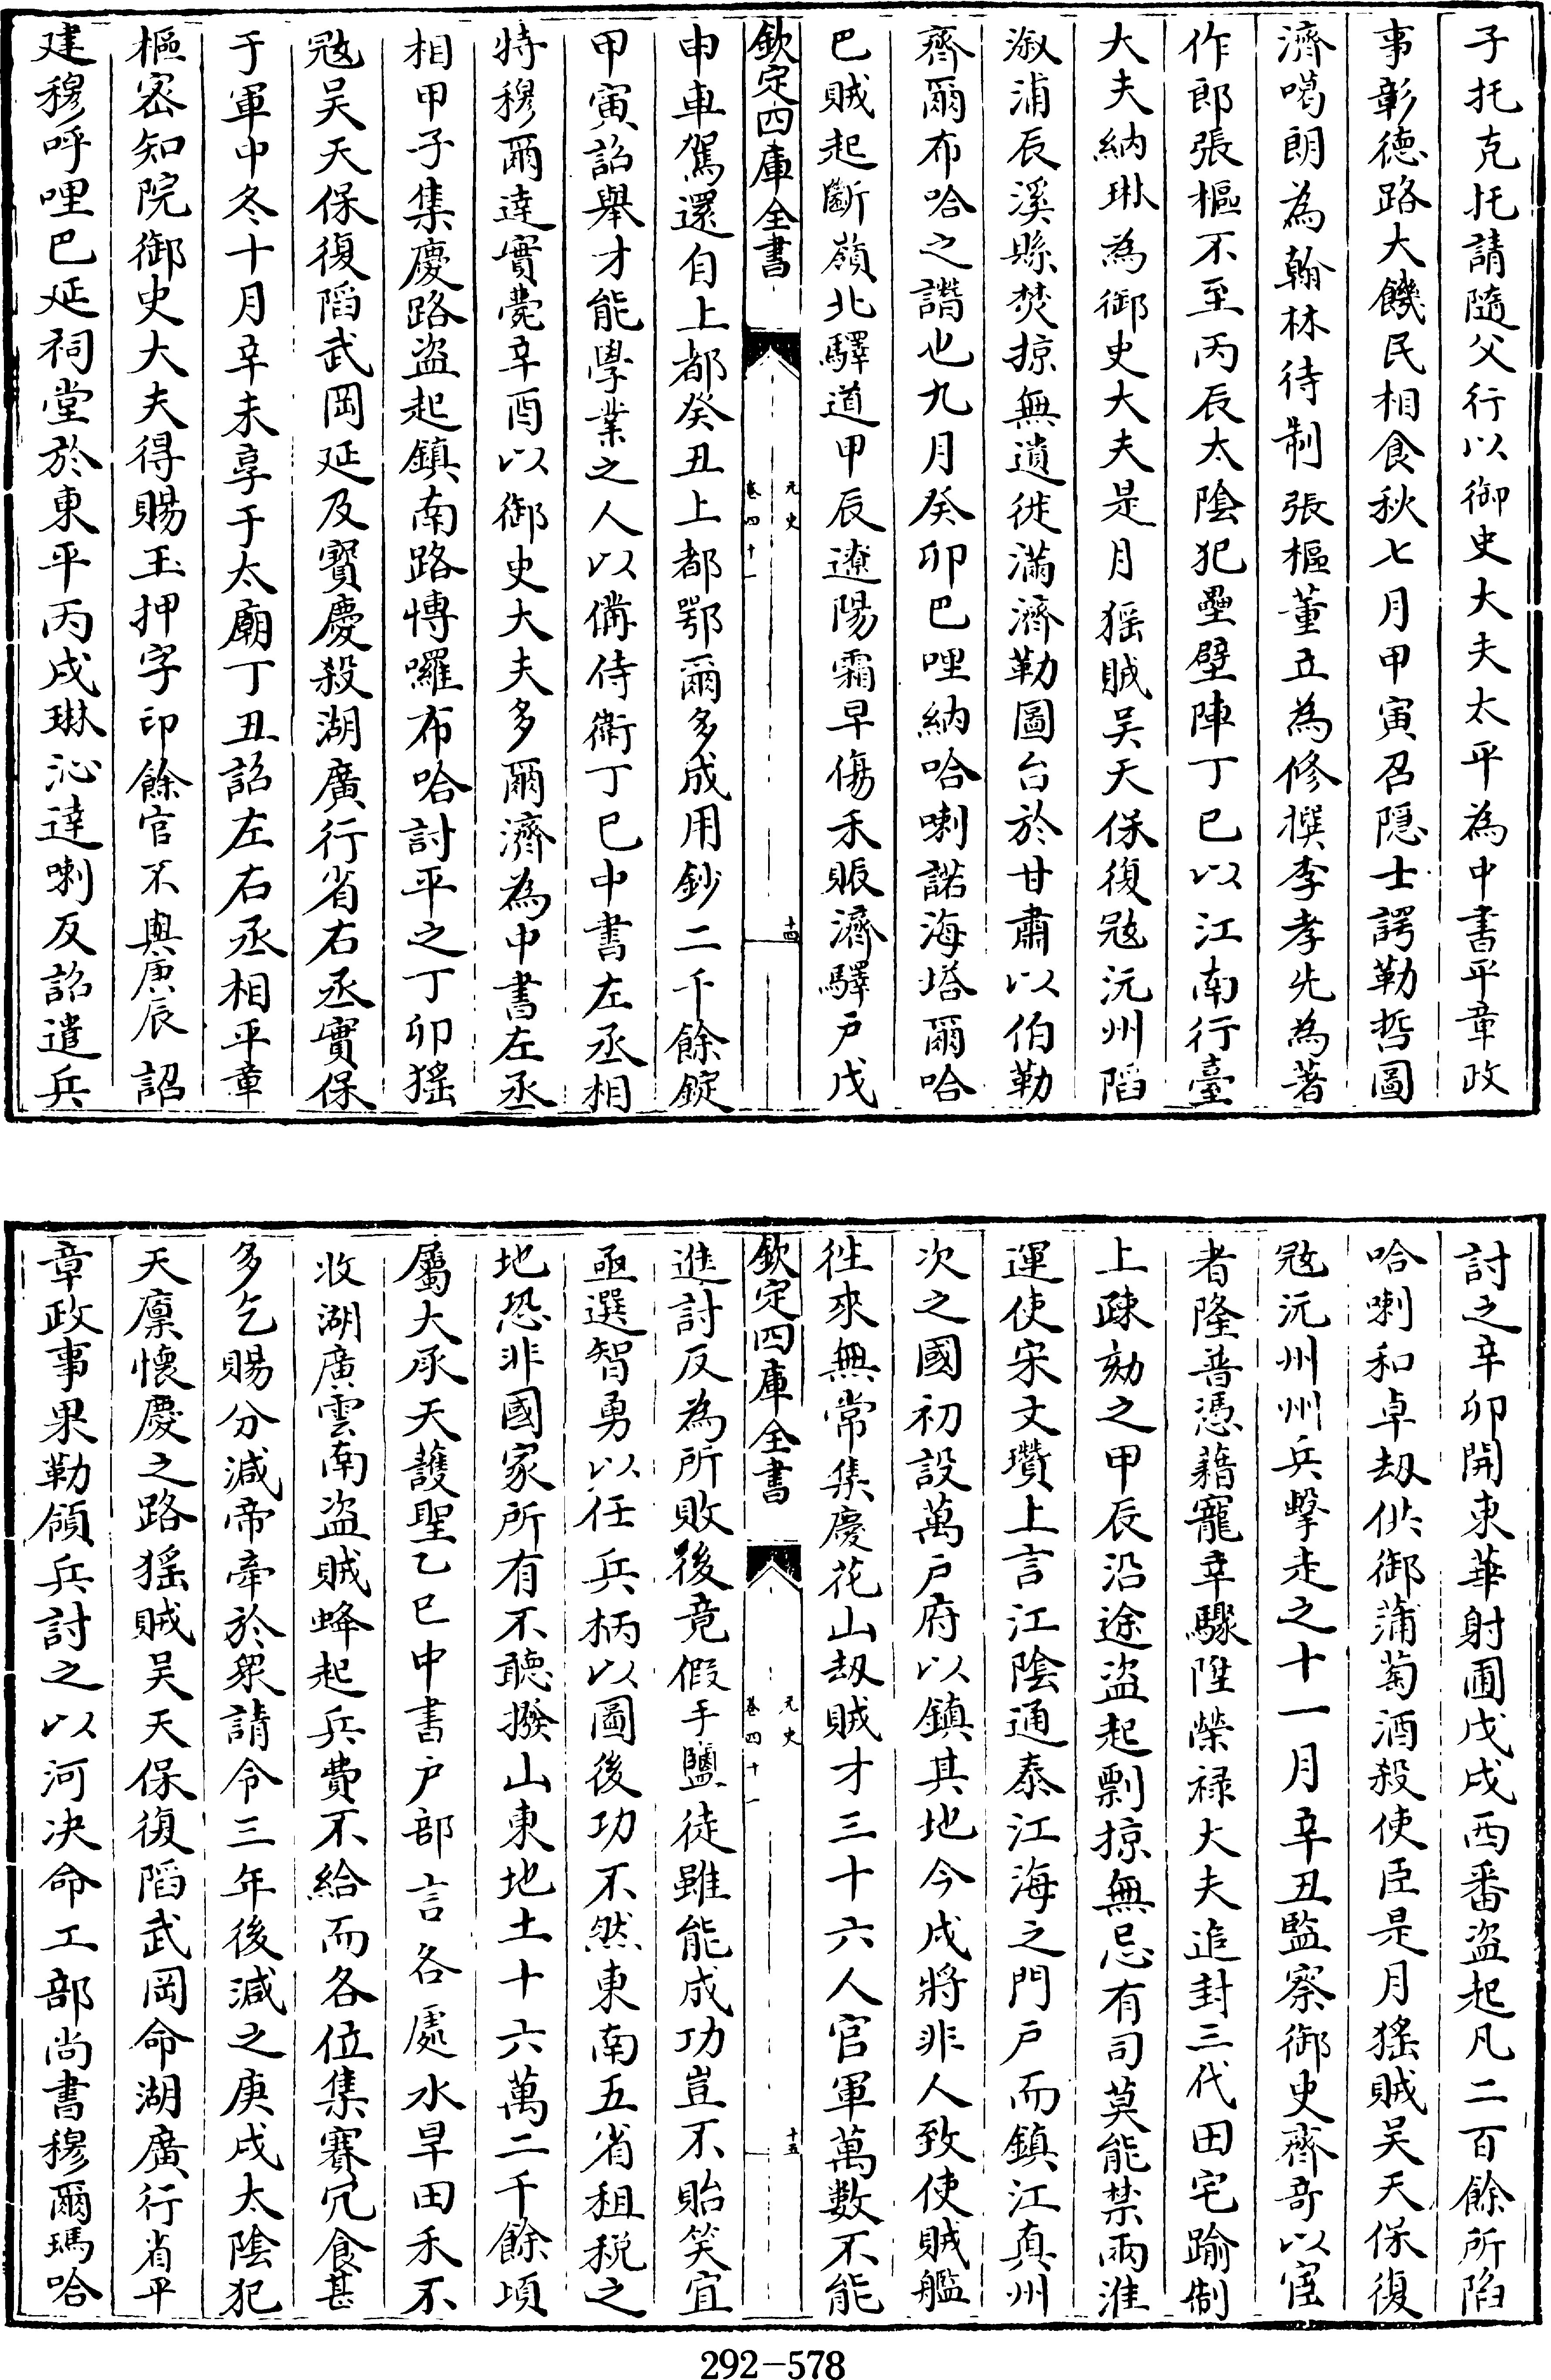 子托克托請隨父行以御史大夫太平為中書平章政
事彰德路大饑民相食秋七月甲寅召隠士諤勒哲圖
濟噶朗為翰林待制張樞董立為修撰李孝先為著
作郎張樞不至丙辰太陰犯壘壁陣丁巳以江南行臺
大夫納琳為御史大夫是月猺賊吴天保復㓂沅州䧟
溆浦辰溪縣焚掠無遺徙滿濟勒圖台於甘肅以伯勒
齊爾布哈之譖也九月癸卯巴哩納哈喇諾海塔爾哈
巴賊起斷嶺北驛道甲辰遼陽霜早傷禾賑濟驛户戊
欽定四庫全書
元史
卷四十一
十四
申車駕還自上都癸丑上都鄂爾多成用鈔二千餘錠
甲寅詔舉才能學業之人以備侍衛丁巳中書左丞相
特穆爾達實薨辛酉以御史大夫多爾濟為中書左丞
相甲子集慶路盗起鎮南路博囉布哈討平之丁卯猺
㓂吴天保復䧟武岡延及寳慶殺湖廣行省右丞實保
于軍中冬十月辛未享于太廟丁丑詔左右丞相平章
樞密知院御史大夫得賜玉押字印餘官不與庚辰詔
建穆呼哩巴延祠堂於東平丙戌琳沁達喇反詔遣兵
討之辛卯開東華射圃戊戌西番盗起凡二百餘所䧟
哈喇和卓刼供御蒲萄酒殺使臣是月猺賊吴天保復
㓂沅州州兵擊走之十一月辛丑監察御史齊奇以宦
者隆普憑藉寵幸驟陞榮禄大夫追封三代田宅踰制
上疎劾之甲辰沿途盗起剽掠無忌有司莫能禁兩淮
運使宋文瓚上言江陰通泰江海之門户而鎮江真州
次之國初設萬户府以鎮其地今戍將非人致使賊艦
徃來無常集慶花山刼賊才三十六人官軍萬數不能
欽定四庫全書
元史
卷四十一
十五
進討反為所敗後竟假手鹽徒雖能成功豈不貽笑宜
亟選智勇以任兵柄以圖後功不然東南五省租税之
地恐非國家所有不聽撥山東地土十六萬二千餘頃
屬大承天護聖乙巳中書户部言各處水旱田禾不
收湖廣雲南盗賊蜂起兵費不給而各位集賽冗食甚
多乞賜分減帝牽於衆請令三年後減之庚戌太陰犯
天廪懷慶之路猺賊吴天保復䧟武岡命湖廣行省平
章政事果勒領兵討之以河决命工部尚書穆爾瑪哈
292-578